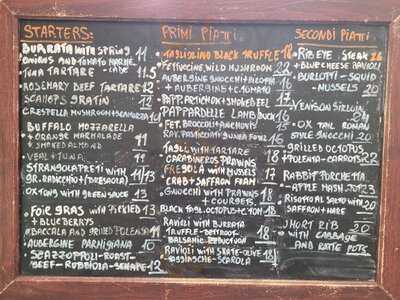 STARTERS:
BURRATA WITH SPRING 11
ONIONS AND TOMATO MARME-
TUNA TARTARE -LADE 11.5
ROSEMARY BEEF TARTARE 12
SCALLOPS GRATIN 12
CRESPELLA MUSHROOM+SCAMORZA 10
BUFFALO MOZZARELLA
+ ORANGE MARMALADE 11
+ SMOKED ALMOND
VEAL + TUNA 11
STRANGOLAPRETI WITH
GR. RADICCHIO + BRESAOLA 13
OX TONG WITH GREEN SAUCE 13
FOIE GRAS WITH PICKLED 13
+ BLUEBERRY
BACCALA AND GRILLED POLENTA 11
AUBERGINE PARMIGIANA 10
ROAST-
BEEF-ROBBIOLA-SENAPE 13
PRIMI PIATTI:
TAGLIOLINO BLACK TRUFFLE 18
FETTUCCINE WILD MUSHROOM 22
AUBERGINE GNOCCHI+RICOTTA
+ AUBERGINE + C. TOMATO 16
PAPP. ARTICHOK + SMOKED EEL 17
PAPPARDELLE LAMB
FET. BROCCOLI + ANCHOVIES 15
TAGL WITH TARTARE
CARABINEROS PRAWNS
FREGOLA WITH MUSSELS 17
CRAB + SAFFRON FOAM
GNOCCHI WITH PRAWNS 18
+ COURGES.
BLACK TAGL. OCTOPUS+C.TOM 18
RAVIOLI WITH BURRATA
TRUFFLE - BEETROOT 18
BALSAMIC REDUCTION
RAVIOLI WITH SKATE-OLIVE 18
SCAROLA
SECONDI PIATTI:
RIB EYE STEAK 26
+ BLUECHEESE RAVIOLI
BURLOTTI - SQUID -
- MUSSELS 20
VENISON SIRLOIN
OX TAIL ROMAN
STYLE GNOCCHI 20
GRILLED OCTOPUS
+ POLENTA + CARROTS 22
RABBIT PORCHETTA
- APPLE MASH 23
RISOTTO AL SALTO WITH
SAFFRON + HARE 20
SHORT RIB
WITH CABBAGE 20
AND RATTE POTS